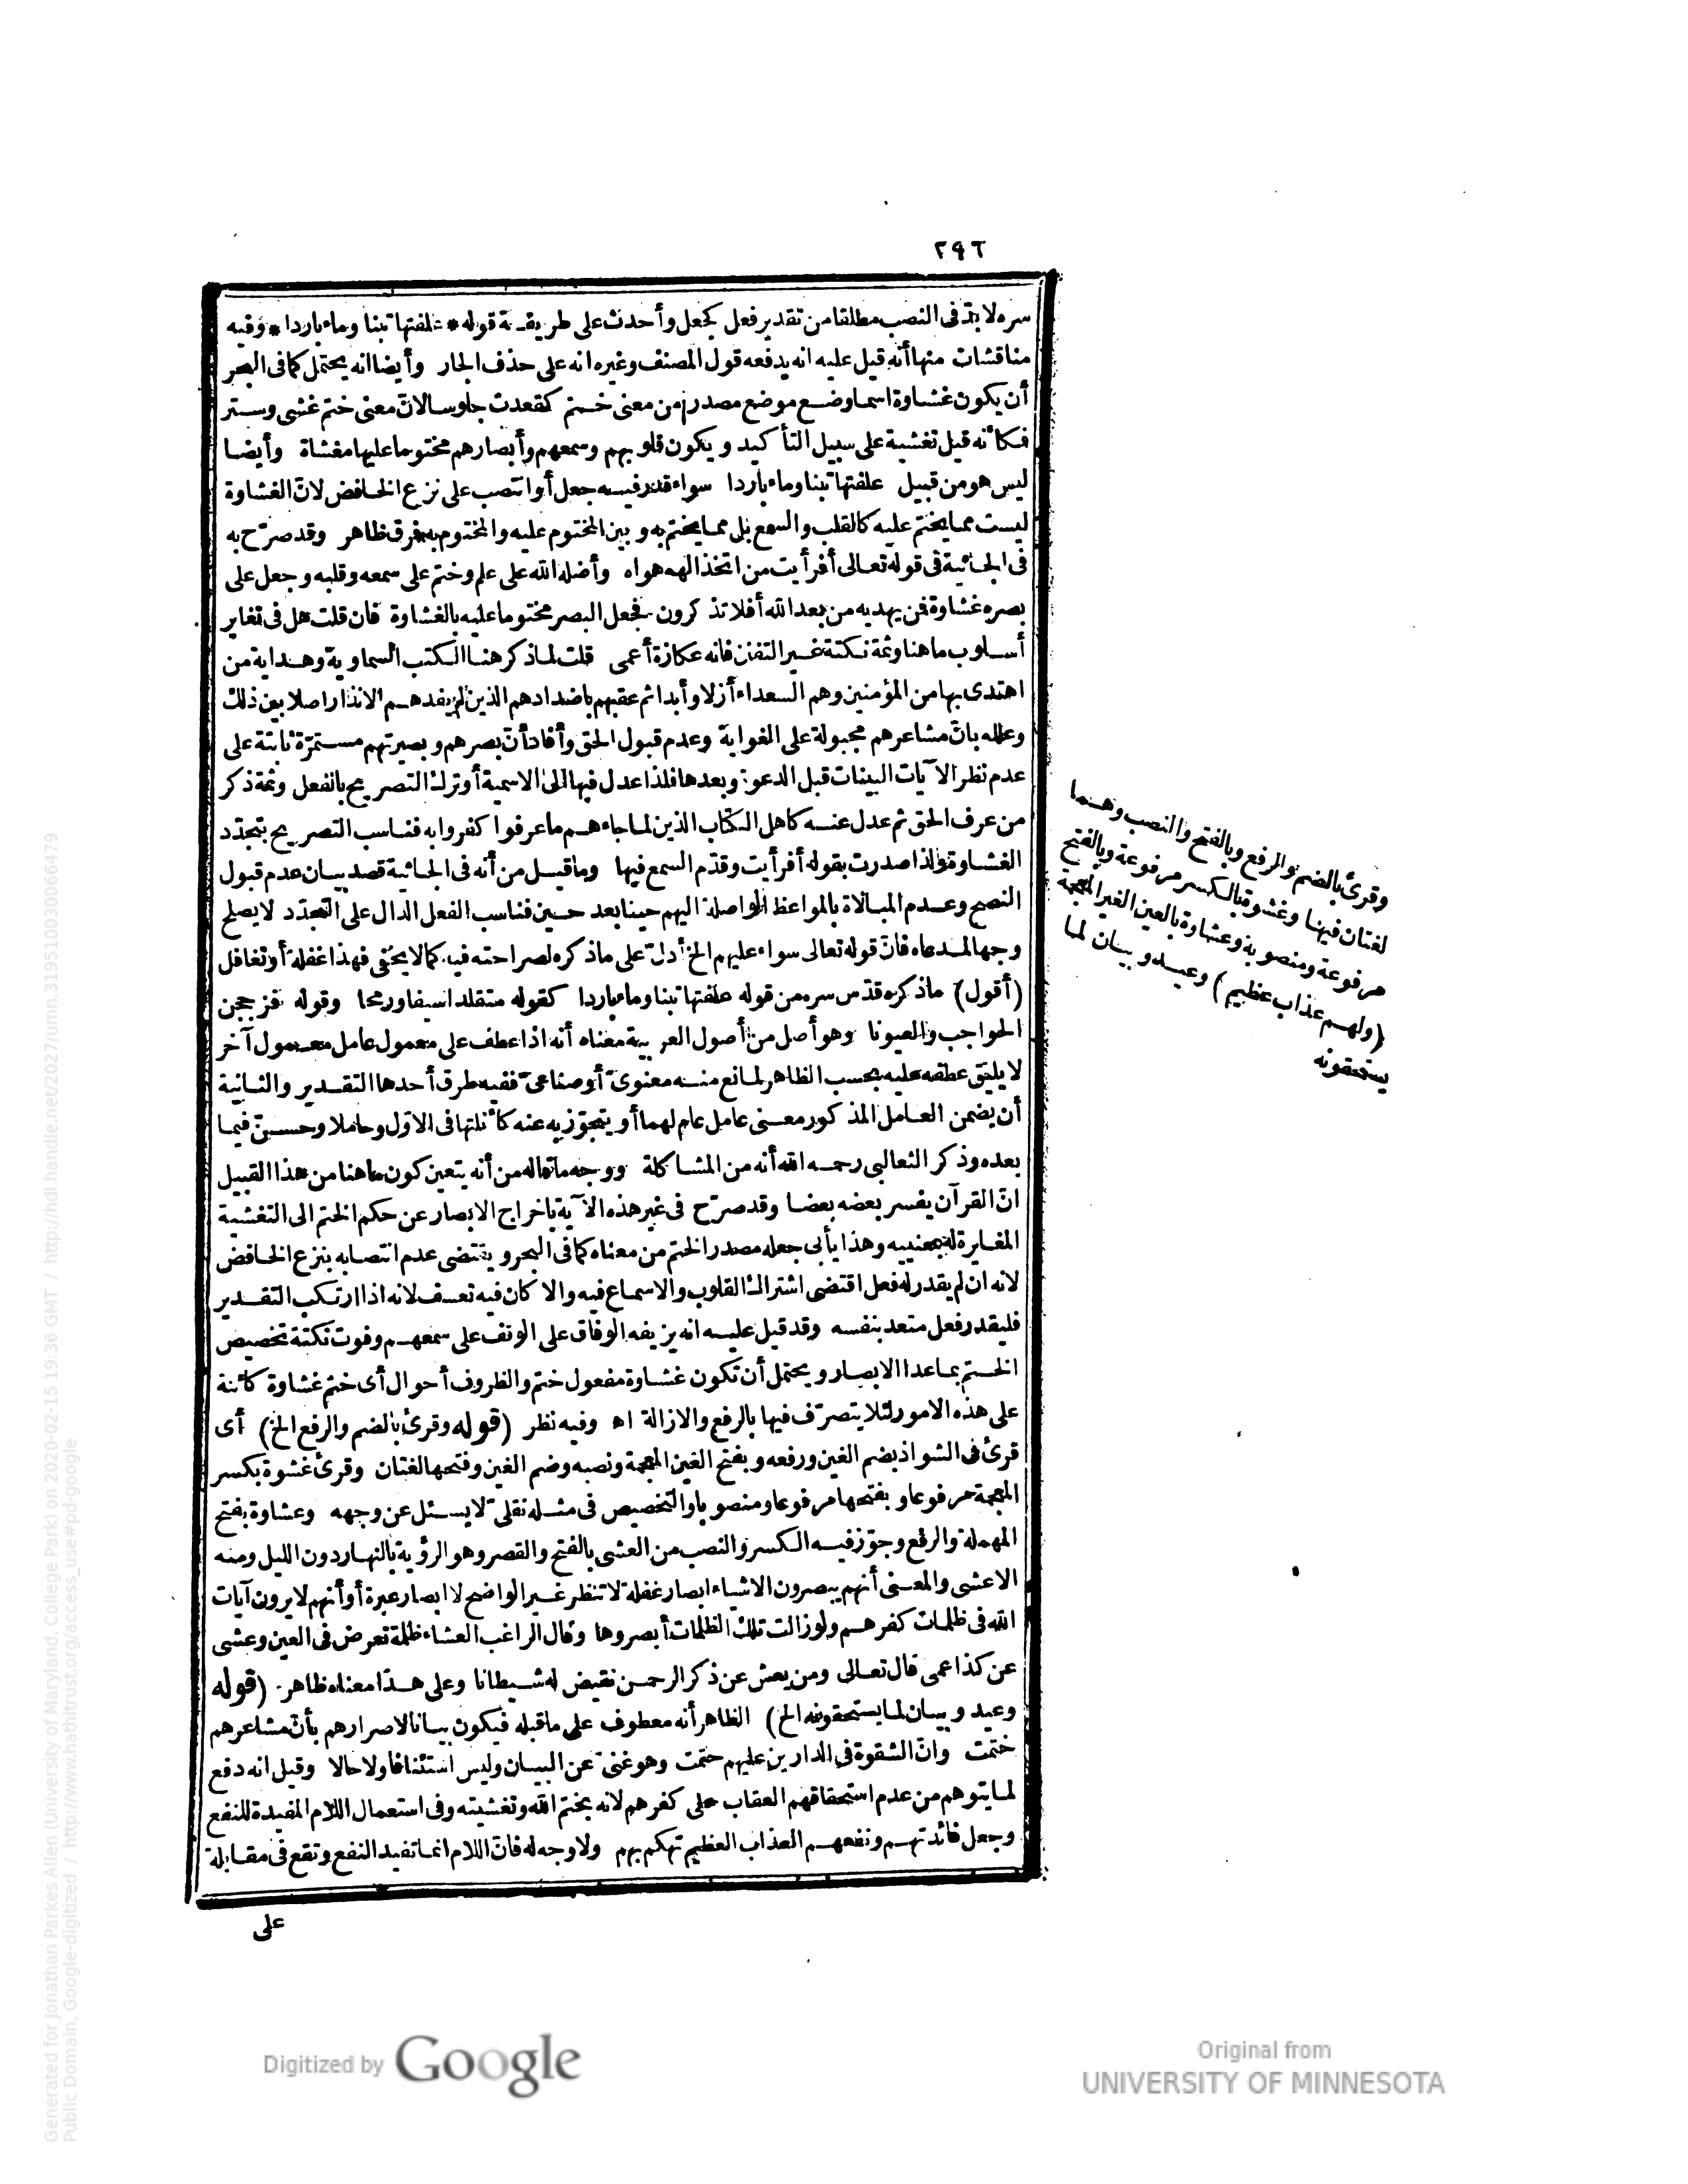 ٢٩٦
سره لابدّ فى النصب مطلقا من تقدير فعل كجعل وأحدث على طريقة قوله * علفتها تبنا وماء باردا * وفيه
مناقشات منها أنه قيل عليه انه يدفعه قول المصنف وغيره انه على حذف الجار وأيضا انه يحتمل كما فى البحر
أن يكون غشاوة اسما وضع موضع مصدر من معنى ختم كقعدت جلوسا لانّ معنى ختم غشى وستر
فكأنه قيل تغشية على سبيل التأكيد ويكون قلوبهم وسمعهم وأبصارهم مختوما عليها مغشاة وأيضا
ليس هو من قبيل علفتها تبنا وماء باردا سواء قدر فيه جعل أو انتصب على نزع الخافض لانّ الغشاوة
ليست مما يختم عليه كالقلب والسمع بل مما يختم به وبين المختوم عليه والمختوم به فرق ظاهر وقد صرّح به
فى الجاثية فى قوله تعالى أفرأيت من اتخذ الهه هواه وأضله الله على علم وختم على سمعه وقلبه وجعل على
بصره غشاوة فمن يهديه من بعد الله أفلا تذكرون فجعل البصر مختوما عليه بالغشاوة فان قلت هل فى تغاير
أسلوب ما هنا وثمة نكتة غير التفنن فانه عكازة أعمى قلت لما ذكر هنا الكتب السماوية وهداية من
اهتدى بها من المؤمنين وهم السعداء أزلا وأبدا ثم عقبهم باضدادهم الذين لم يفدهم الانذار اصلا بين ذلك
وعلله بانّ مشاعرهم مجبولة على الغواية وعدم قبول الحق وأفاد أنّ بصرهم وبصيرتهم مستمرّة ثابتة على
عدم نظر الآيات البينات قبل الدعوة وبعدها فلذا عدل فيها الى الاسمية أو ترك التصريح بالفعل وثمة ذكر
من عرف الحق ثم عدل عنه كاهل الكتاب الذين لما جاءهم ما عرفوا كفروا به فناسب التصريح بتجدّد
الغشاوة ولذا صدرت بقوله أفرأيت وقدّم السمع فيها وما قيل من أنه فى الجاثية قصد بيان عدم قبول
النصح وعدم المبالاة بالمواعظ الواصلة اليهم حينا بعد حين فناسب الفعل الدال على التجدّد لا يصلح
وجها لمدعاه فانّ قوله تعالى سواء عليهم الخ أدلّ على ما ذكره لصراحته فيه كما لا يخفى فهذا غفلة أو تغافل
(أقول) ما ذكره قدّس سره من قوله علفتها تبنا وماء باردا كقوله متقلدا سيفا ورمحا وقوله فزججن
الحواجب والعيونا وهو أصل من أصول العربية معناه أنه اذا عطف على معمول عامل معمول آخر
لا يليق عطفه عليه بحسب الظاهر لمانع منه معنوىّ أو صناعىّ ففيه طرق أحدها التقدير والثانية
أن يضمن العامل المذكور معنى عامل عام لهما أو يتجوّز به عنه كأنلتها فى الاوّل وحاملا وحسنّ فيما
بعده وذكر الثعالبى رحمه الله أنه من المشاكلة ووجه ما قاله من أنه يتعين كون ما هنا من هذا القبيل
انّ القرآن يفسر بعضه بعضا وقد صرّح فى غير هذه الآية باخراج الابصار عن حكم الختم الى التغشية
المغايرة له بمعنييه وهذا يأبى جعله مصدر الختم من معناه كما فى البحر ويقتضى عدم انتصابه بنزع الخافض
لانه ان لم يقدر له فعل اقتضى اشتراك القلوب والاسماع فيه والا كان فيه تعسف لانه اذا ارتكب التقدير
فليقدر فعل متعد بنفسه وقد قيل عليه انه يزيفه الوفاق على الوقف على سمعهم وفوت نكتة تخصيص
الختم بماعدا الابصار ويحتمل أن تكون غشاوة مفعول ختم والظروف أحوال أى ختم غشاوة كائنة
على هذه الامور لئلا يتصرّف فيها بالرفع والازالة اه وفيه نظر (قوله وقرئ بالضم والرفع الخ) أى
قرئ فى الشواذ بضم الغين ورفعه وبفتح الغين المعجمة ونصبه وضم الغين وفتحها لغتان وقرئ غشوة بكسر
المعجمة مرفوعا وبفتحها مرفوعا ومنصوبا والتخصيص فى مثله نقلىّ لا يسئل عن وجهه وعشاوة بفتح
المهملة والرفع وجوّز فيه الكسر والنصب من العشى بالفتح والقصر وهو الرؤية بالنهار دون الليل ومنه
الاعشى والمعنى أنهم يبصرون الاشياء ابصار غفلة لا تنظر غير الواضح لا ابصار عبرة أو أنهم لا يرون آيات
الله فى ظلمات كفرهم ولو زالت تلك الظلمات أبصروها وقال الراغب العشاء ظلمة تعرض فى العين وعشى
عن كذا عمى قال تعالى ومن يعش عن ذكر الرحمن نقيض له شيطانا وعلى هذا معناه ظاهر. (قوله
وعيد وبيان لما يستحقونه الخ) الظاهر أنه معطوف على ما قبله فيكون بيانا لاصرارهم بأنّ مشاعرهم
ختمت وانّ الشقوة فى الدارين عليهم حتمت وهو غنىّ عن البيان وليس استئنافا ولا حالا وقيل انه دفع
لما يتوهم من عدم استحقاقهم العقاب على كفرهم لانه بختم الله وتغشيته وفى استعمال اللام المفيدة للنفع
وجعل فائدتهم ونفعهم العذاب العظيم تهكم بهم ولا وجه له فانّ اللام انما تفيد النفع وتقع فى مقابلة
على
وقرئ بالضم والرفع وبالفتح والنصب وهما
لغتان فيها وغشوة بالكسر مرفوعة وبالفتح
مرفوعة ومنصوبة وعشاوة بالعين الغير المعجمة
(ولهم عذاب عظيم) وعيد وبيان لما
يستحقونه
Generated for Jonathan Parkes Allen (University of Maryland, College Park) on 2020-02-15 19:36 GMT / http://hdl.handle.net/2027/umn.319510030066479
Public Domain, Google-digitized / http://www.hathitrust.org/access_use#pd-google
Digitized by Google
Original from
UNIVERSITY OF MINNESOTA